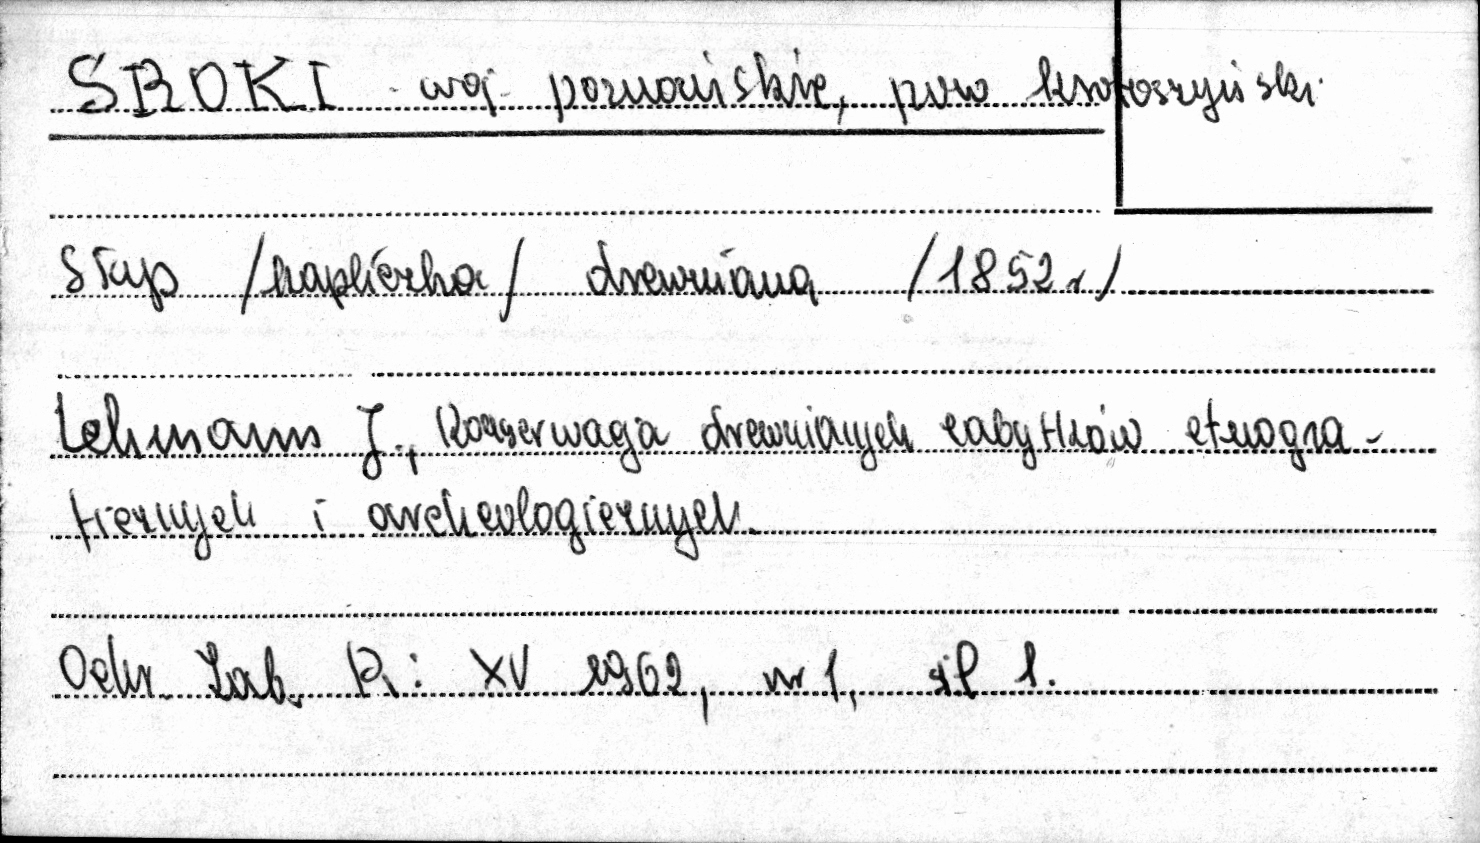 SROKI - woj. poznańskie, pow krotoszyński
Słup /kapliczka/ drewniana /1852 r/
Lehmann J., Konserwacja drewnianych zabytków etnogra-
ficznych i archeologicznych.
Ochr. Zab. R: XV 1962, nr 1, il 1.